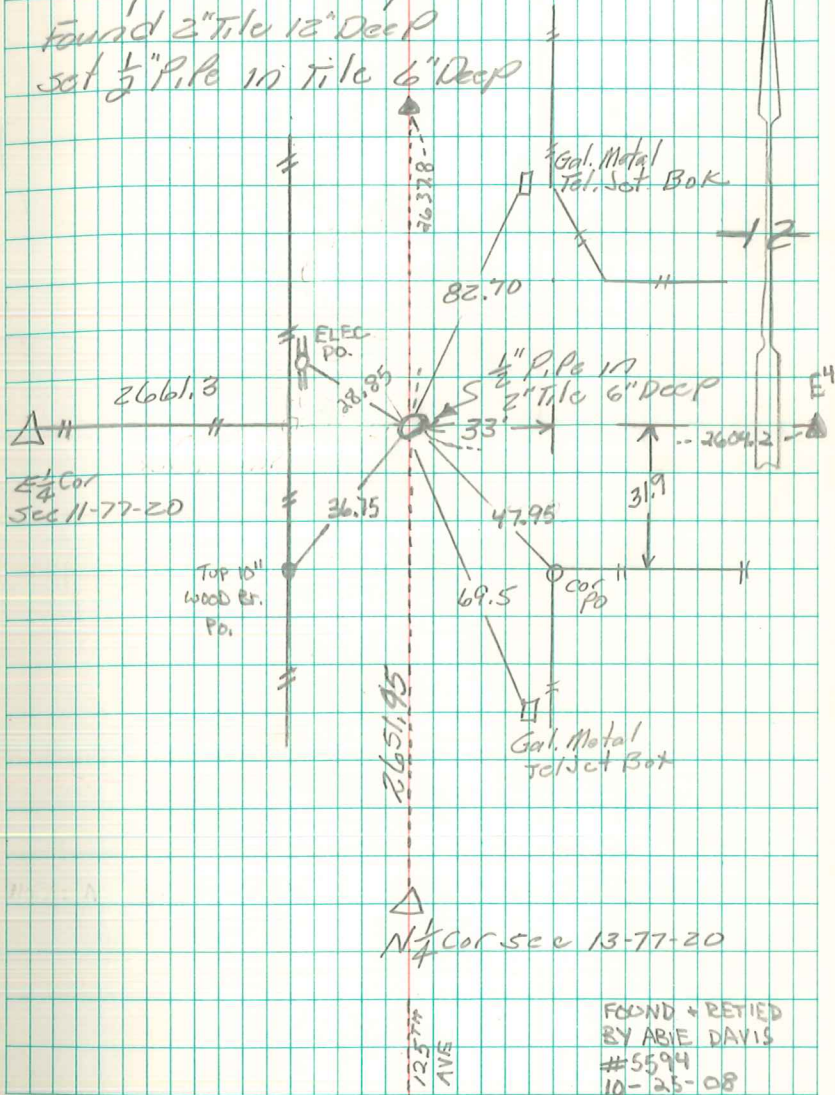 Found 2" Tile 12" Deep
Set 1/2" Pipe in Tile 6" Deep
2637.8
Gal. Metal
Tel. Jct. Box
12
82.70
ELEC
PO.
28.85
1/2" Pipe in
2" Tile 6" Deep
2661.3
33'
E4
2604.2
E 1/4 Cor
Sec 11-77-20
36.75
47.95
31.9
Top 10"
WOOD Br.
PO.
69.5
Cor
Po
2651.95
Gal. Metal
Tel Jct Box
N 1/4 Cor Sec 13-77-20
125TH
AVE
FOUND + RETIED
BY ABIE DAVIS
#5594
10-25-08